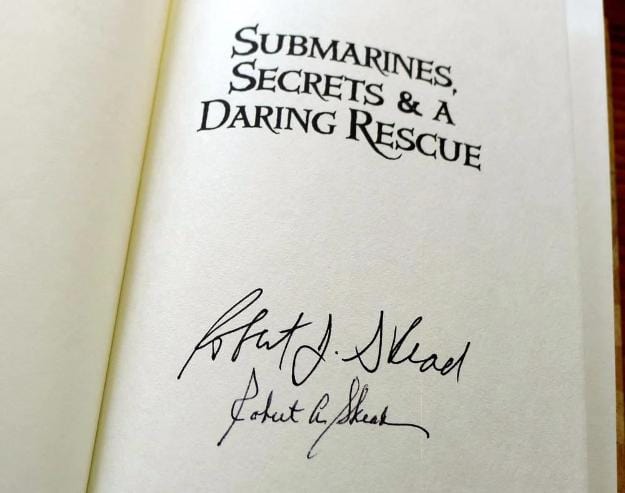 SUBMARINES,
SECRETS & A
DARING RESCUE
Robert J. Skead
Robert A. Skead